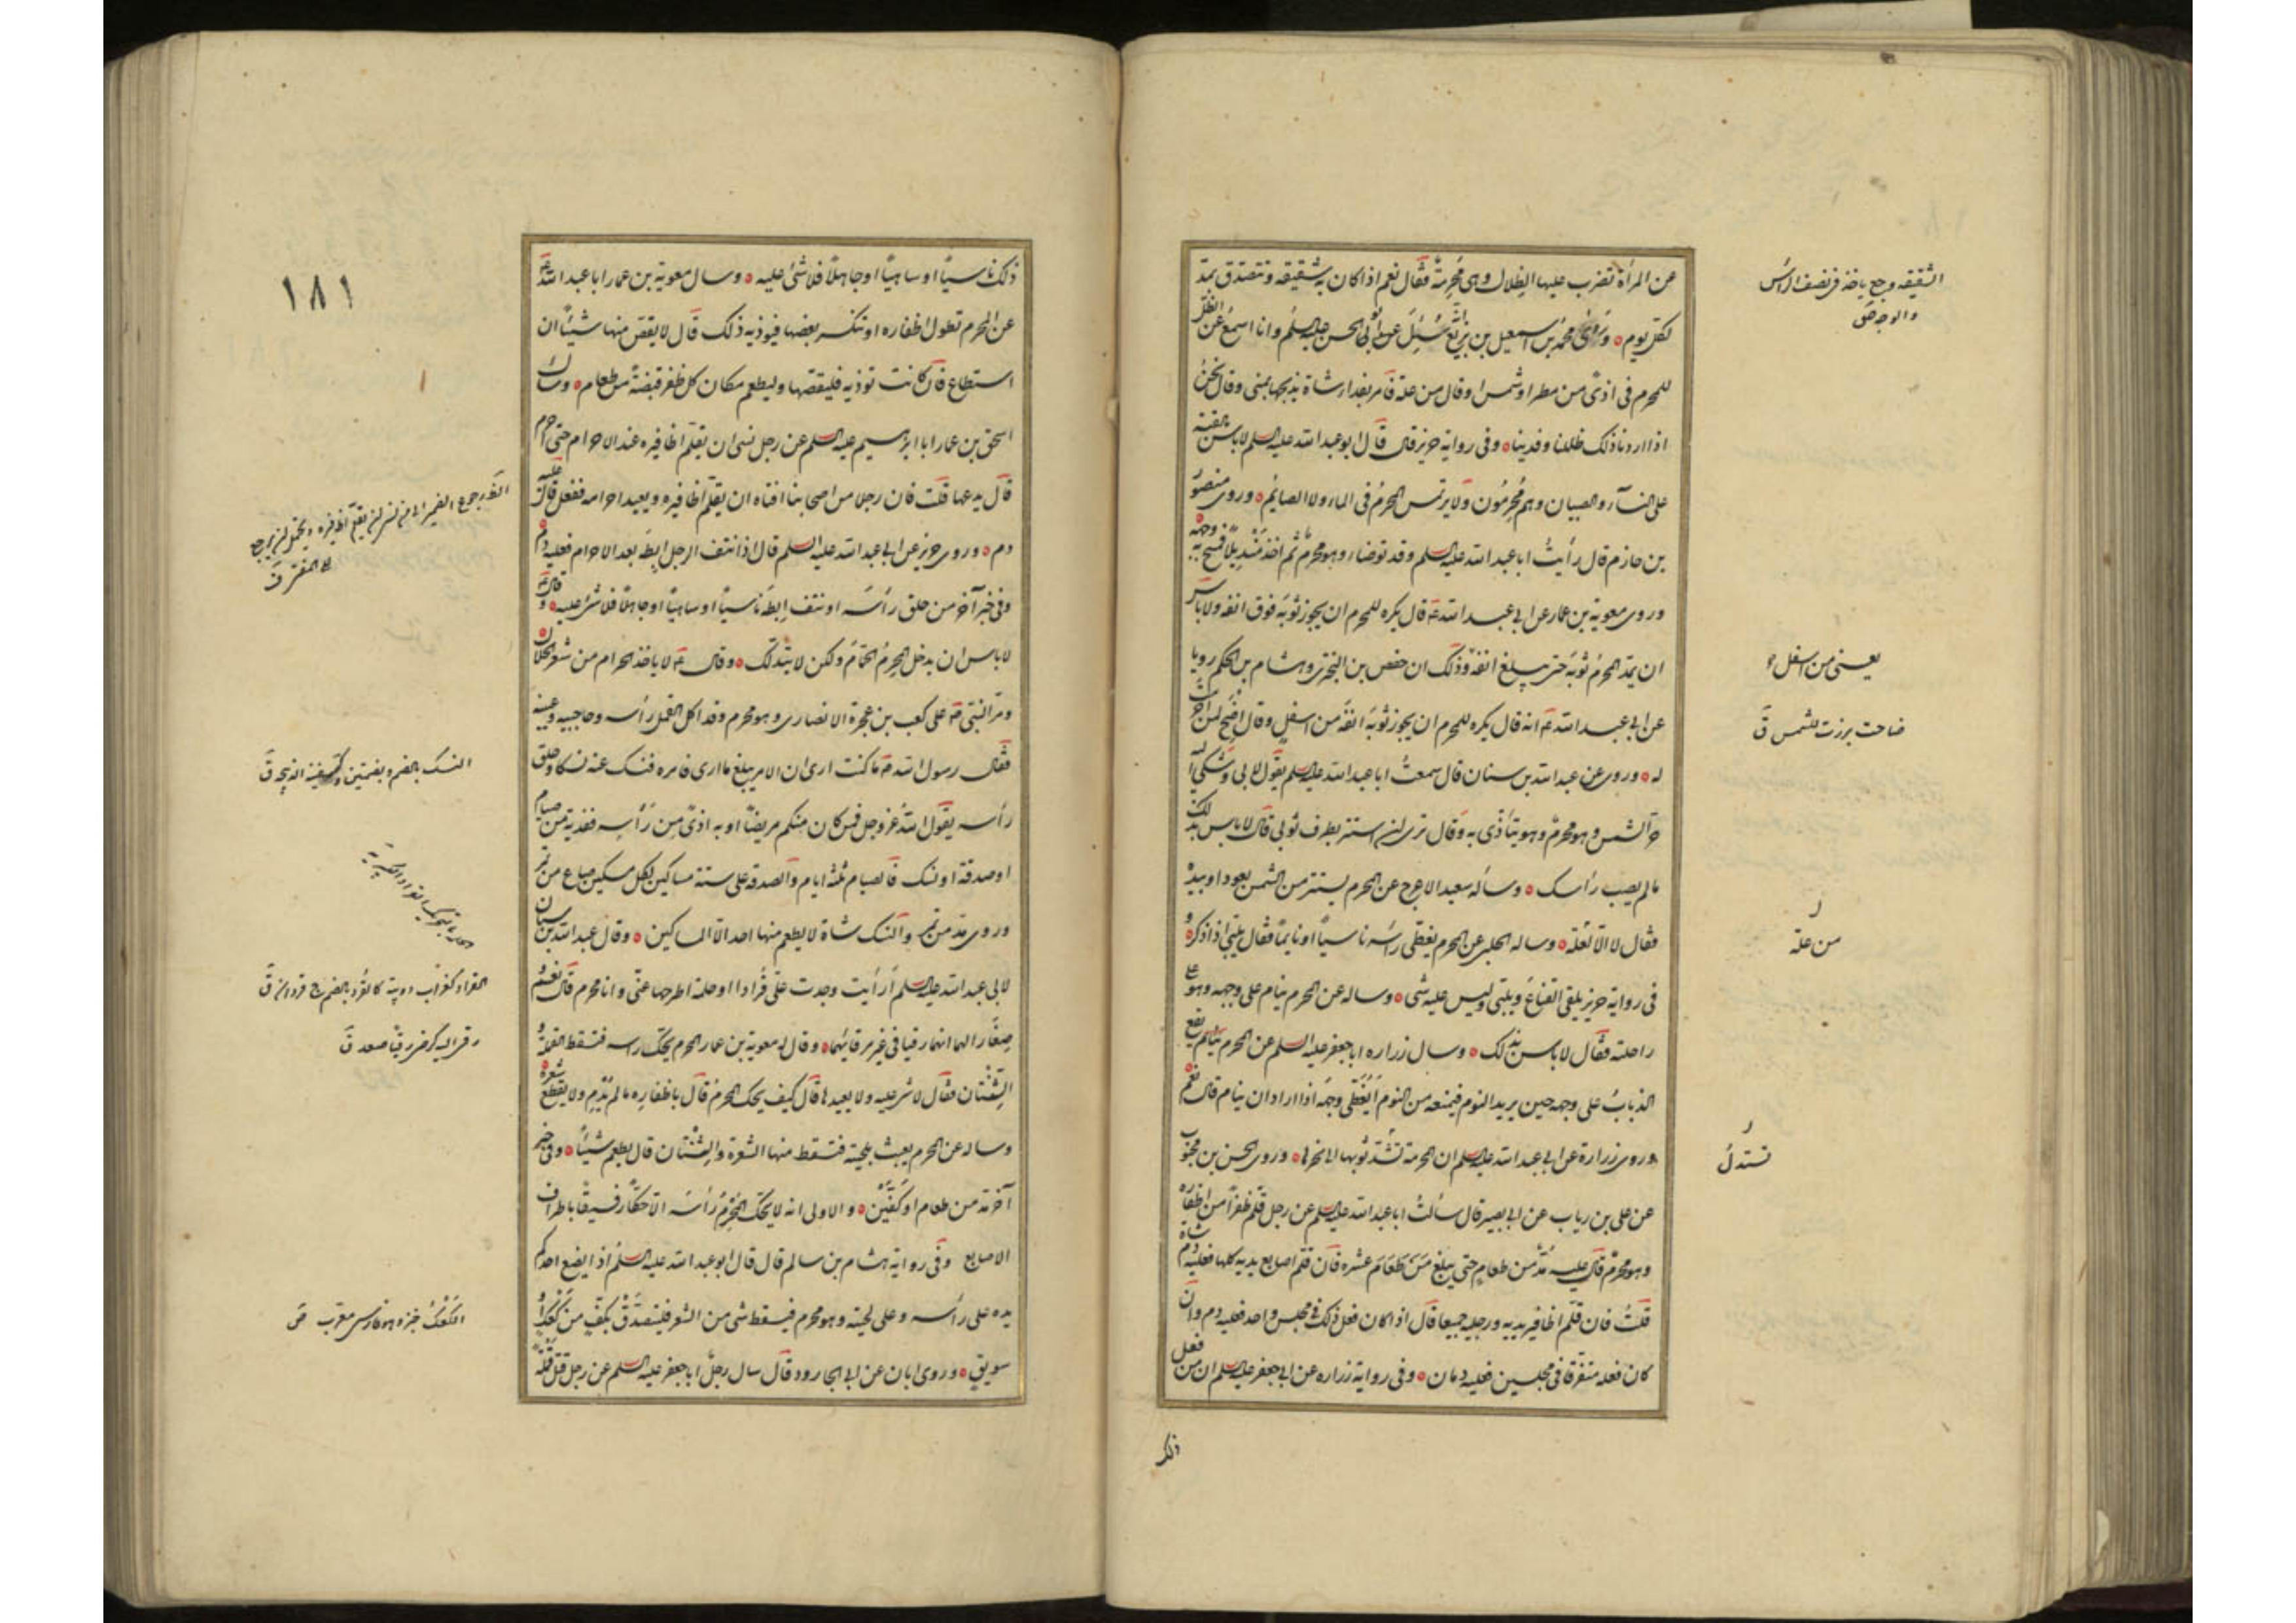 عن المرأة تضرب عليها الظلال وهى محرمة فقال نعم اذا كان به شقيقة وتتصدق بمد
لكل يوم وروى محمد بن اسمعيل بن بزيع سئل عن ابى الحسن عليه السلم وانا اسمع عن الظل
للمحرم فى اذى من مطر او شمس او قال من علة فامر بفداء شاة يذبحها بمنى وقال نحن
اذا اردنا ذلك ظللنا وفدينا وفى رواية حريز قال قال ابو عبد الله عليه السلم لا باس بالقبة
على النساء والصبيان وهم محرمون ولا يرتمس المحرم فى الماء ولا الصائم وروى منصور
بن حازم قال رأيت ابا عبد الله عليه السلم وقد توضاء وهو محرم ثم اخذ منديلا فمسح به وجهه
وروى معوية بن عمار عن ابى عبد الله ع قال يكره للمحرم ان يجوز ثوبه فوق انفه ولا باس
ان يمد المحرم ثوبه حتى يبلغ انفه وذلك ان حفص بن البخترى وهشام بن الحكم رويا
عن ابى عبد الله ع انه قال يكره للمحرم ان يجوز ثوبه انفه من اسفل وقال اضح لمن احرمت
له وروى عن عبد الله بن سنان قال سمعت ابا عبد الله عليه السلم يقول لابى وشكى اليه
حر الشمس وهو محرم وهو يتاذى به وقال ترى ان استتر بطرف ثوبى قال لا باس بذلك
ما لم يصب رأسك وسأله سعيد الاعرج عن المحرم يستتر من الشمس بعود او بيده
فقال لا الا لعلة وساله الحلبى عن المحرم يغطى رأسه ناسيا او نايما فقال يلبى اذا ذكره
فى رواية حريز يلقى القناع ويلبى وليس عليه شى وساله عن المحرم ينام على وجهه وهو على
راحلته فقال لا باس بذلك وسال زراره ابا جعفر عليه السلم عن المحرم يقع
الذباب على وجهه حين يريد النوم فيمنعه من النوم أيغطى وجهه اذا اراد ان ينام قال نعم
وروى زرارة عن ابى عبد الله عليه السلم ان المحرمة تشد ثوبها الى نحرها وروى الحسن بن محبوب
عن على بن رياب عن ابى بصير قال سألت ابا عبد الله عليه السلم عن رجل قلم ظفرا من اظفاره
وهو محرم قال عليه مد من طعام حتى يبلغ عشره فان قلم اصابع يديه كلها فعليه دم شاة
قلت فان قلم اظافير يديه ورجليه جميعا قال اذا كان فعل ذلك فى مجلس واحد فعليه دم وان
كان فعله متفرقا فى مجلسين فعليه دمان وفى رواية زراره عن ابى جعفر عليه السلم ان من فعل
ذلك
الشقيقة وجع ياخذ فى نصف الرأس
والوجه ص
يعنى من اسفل
ضاحت برزت للشمس ق
من علة
تستدل
ذلك ناسيا او ساهيا او جاهلا فلا شئ عليه وسال معوية بن عمار ابا عبد الله ع
عن المحرم تطول اظفاره او تنكسر بعضها فيوذيه ذلك قال لا يقص منها شيئا ان
استطاع فان كانت توذيه فليقصها وليطعم مكان كل ظفر قبضة من طعام وسال
اسحق بن عمار ابا ابراهيم عليه السلم عن رجل نسى ان يقلم اظافيره عند الاحرام حتى احرم
قال يدعها قلت فان رجلا من اصحابنا افتاه ان يقلم اظافيره ويعيد احرامه ففعل قال عليه
دم وروى حريز عن ابى عبد الله عليه السلم قال اذا نتف الرجل ابطه بعد الاحرام فعليه دم
وفى خبر آخر من حلق رأسه او نتف ابطه ناسيا او ساهيا او جاهلا فلا شئ عليه وقال ع
لا باس ان يدخل المحرم الحمام ولكن لا يتدلك وقال ع لا ياخذ الحرام من شعر الحلال
ومر النبى ص على كعب بن عجرة الانصارى وهو محرم وقد اكل القمل رأسه وحاجبيه وعينيه
فقال رسول الله ص ما كنت ارى ان الامر يبلغ ما ارى فامره فنسك عنه نسكا وحلق
رأسه يقول الله عز وجل فمن كان منكم مريضا او به اذى من رأسه ففدية من صيام
او صدقة او نسك فالصيام ثلثة ايام والصدقة على ستة مساكين لكل مسكين صاع من تمر
وروى مد من تمر والنسك شاة لا يطعم منها احد الا المساكين وقال عبد الله بن سنان
لابى عبد الله عليه السلم أرأيت وجدت على قرادا او حلمة اطرحها عنى وانا محرم قال نعم و
صغارا لهما انهما رقيا فى غير مرقاتهما وقال له معوية بن عمار المحرم يحك راسه فتسقط القملة و
الثنتان فقال لا شئ عليه ولا يعيدها قال كيف يحك المحرم قال باظفاره ما لم يدم ولا يقطع شعره
وساله عن المحرم يعبث بلحيته فتسقط منها الشعرة والثنتان قال يطعم شيئا وفى خبر
آخر مد من طعام او كفين والاولى انه لا يحك المحرم رأسه الا حكا رفيقا باطراف
الاصابع وفى رواية هشام بن سالم قال قال ابو عبد الله عليه السلم اذا يضع احدكم
يده على رأسه وعلى لحيته وهو محرم فيسقط شى من الشعر فليتصدق بكف من كعك او
سويق وروى ابان عن ابى الجارود قال سال رجل ابا جعفر عليه السلم عن رجل قتل قملة
١٨١
النسك بالضم وبضمتين وكسفينة الذبيحة ق
القراد كغراب دويبة كالقرد بالضم ج قردان ق
رقى اليه كرضى رقيا صعد ق
الكعك خبز وهو فارسى معرب ص